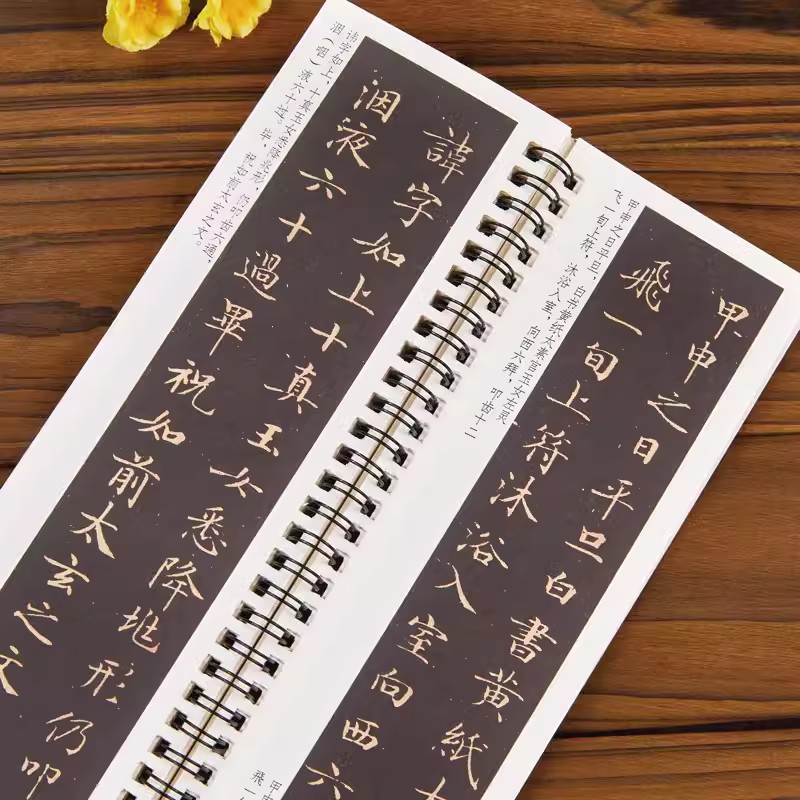 甲申之日平旦，白书黄纸太素宫玉女左灵
飞一旬上符，沐浴入室，向西六拜，叩齿十二
甲申之日平旦白書黄紙
飛一旬上符沐浴入室向西六
讳字如上，十真玉女悉降兆形，仍叩齿六通，
洇（咽）液六十过。毕，祝如前太玄之文。
諱字如上十真玉女悉降兆形仍叩
洇液六十過畢祝如前太玄之文
甲申
飛一